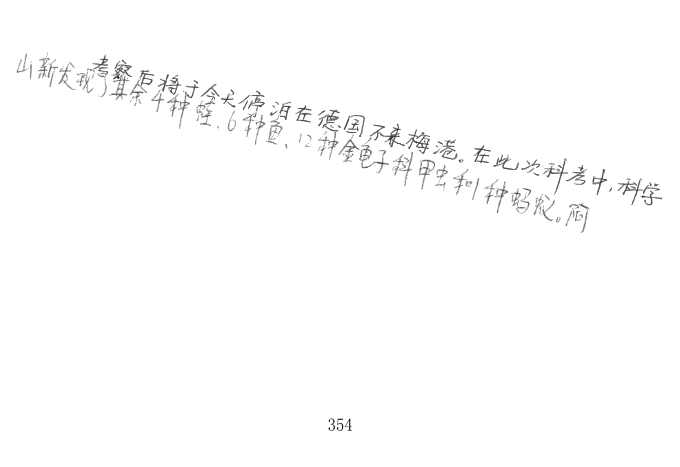 考察后将于今天停泊在德国不来梅港。在此次科考中,科学
山新发现了其余4种蛙、6种鱼、12种金龟子科甲虫和1种蚂蚁。简
354